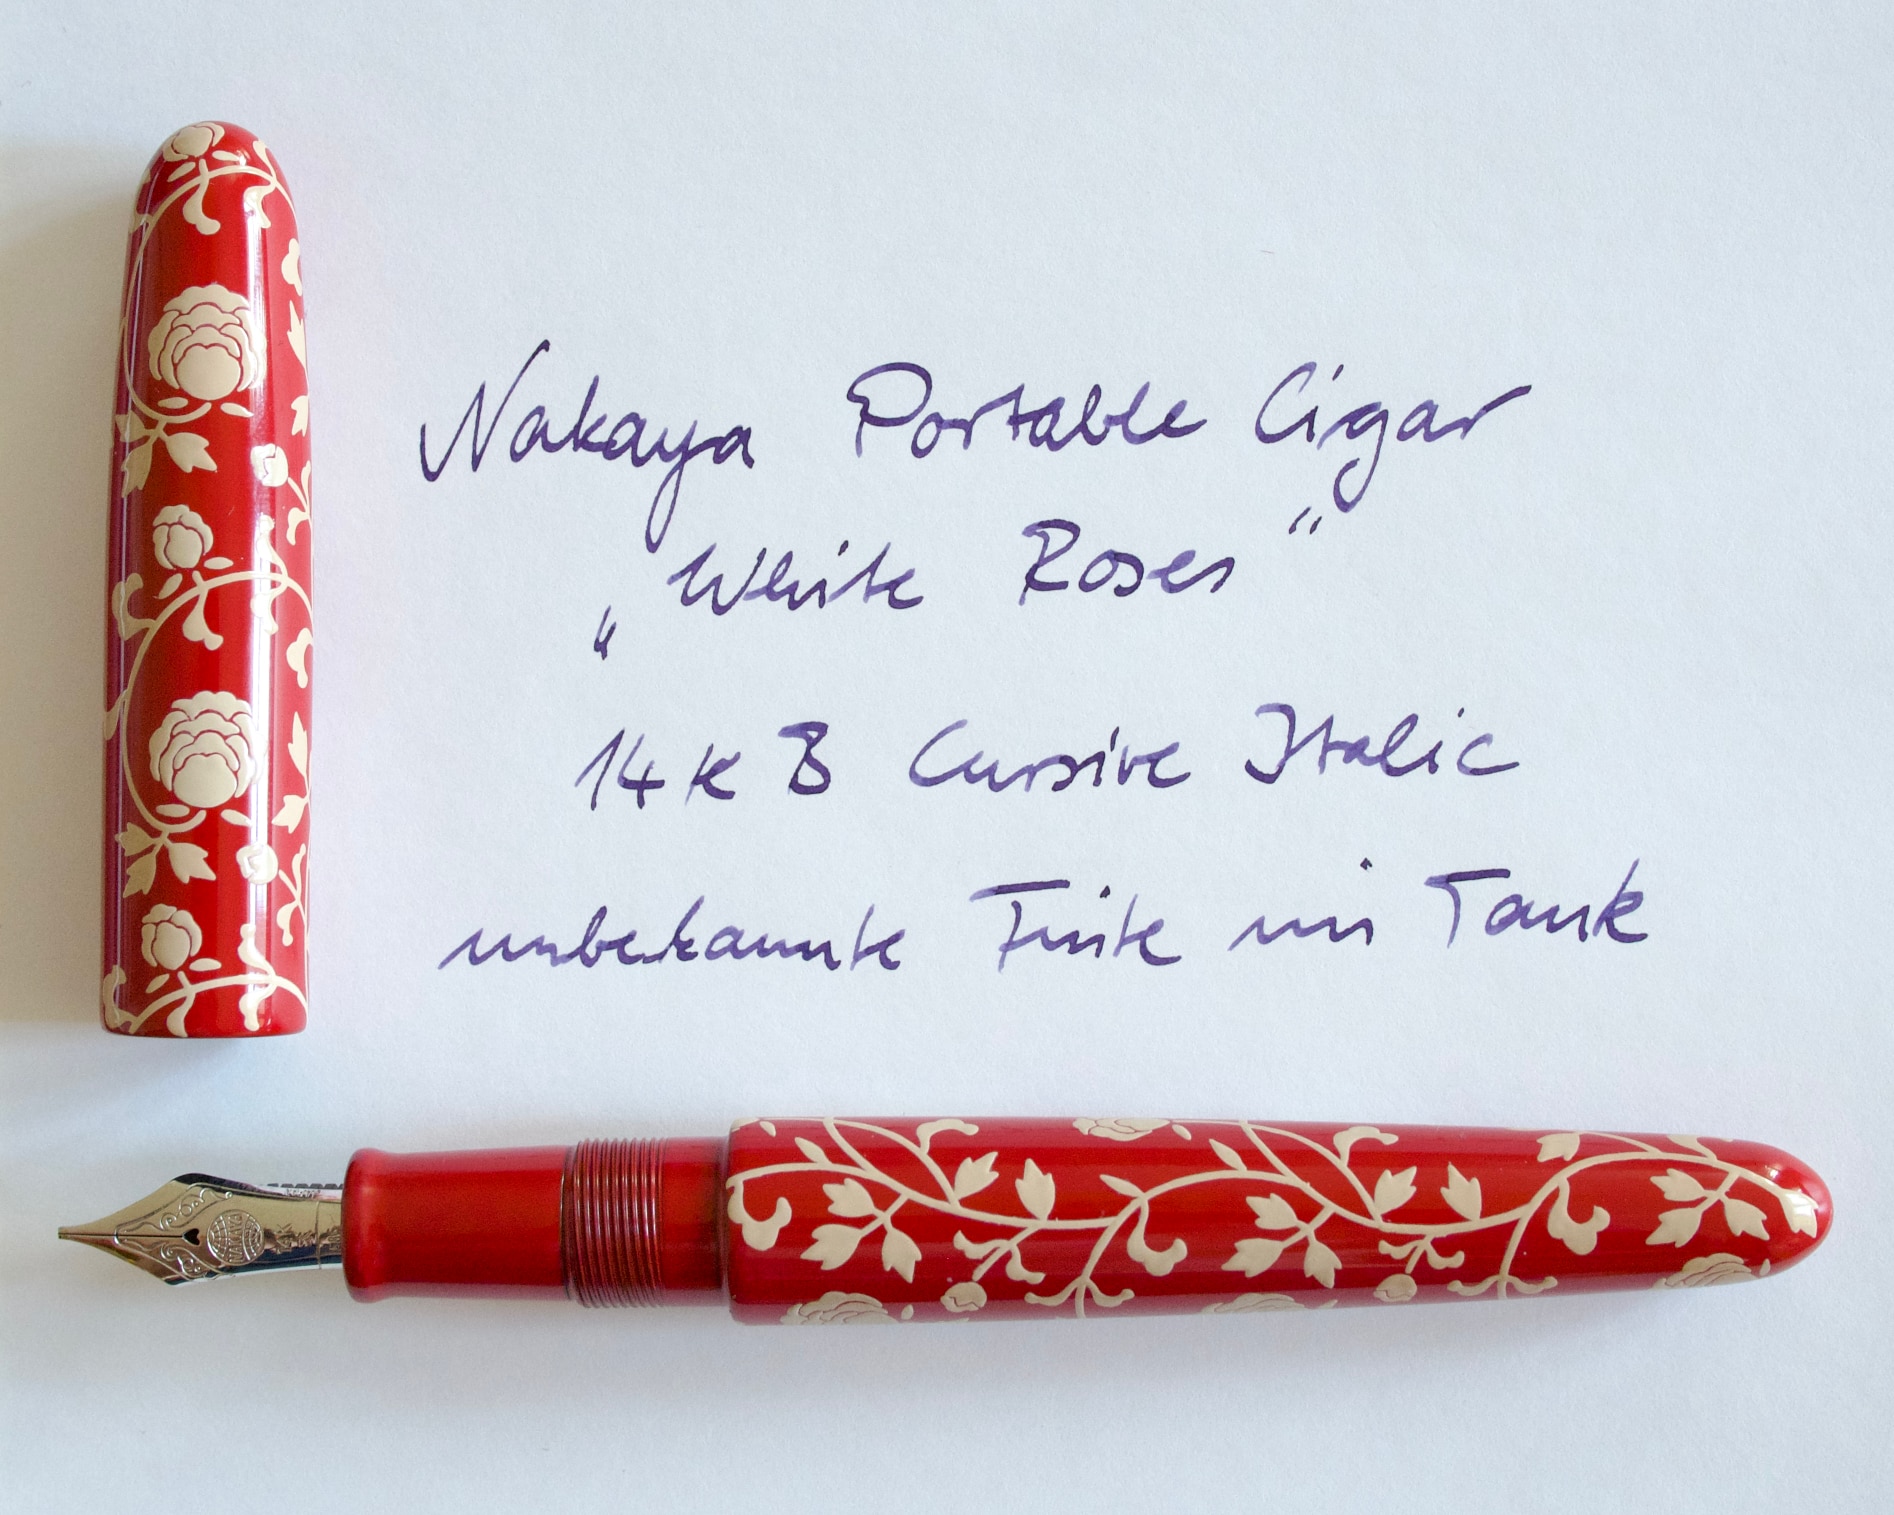 Nakaya Portable Cigar
„White Roses“
14k B Cursive Italic
unbekannte Tinte im Tank